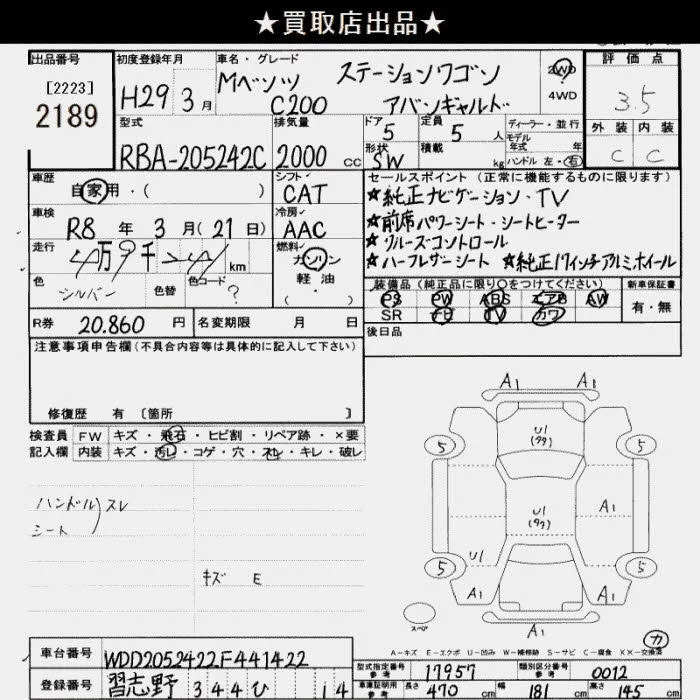 ★買取店出品★
出品番号
[2223]
2189
初度登録年月
H29年3月
車名・グレード
Mベンツ ステーションワゴン
C200 アバンギャルド
2WD
4WD
評価点
3.5
外装 内装
C C
型式
RBA-205242C
排気量
2000 cc
ドア 5
形状 SW
定員 5 人
積載 kg
ディーラー・並行
モデル年式 年
ハンドル 左・右
車歴
自家用・( )
シフト
CAT
車検
R8 年 3 月 (21 日)
冷房
AAC
走行
km
燃料
ガソリン
軽油
( ・ )
色
シルバー
色替
色コード
?
R券 20.860 円
名変期限 月 日
セールスポイント (正常に機能するものに限ります)
★純正ナビゲーション・TV
★前席パワーシート・シートヒーター
★クルーズコントロール
★ハーフレザーシート ★純正17インチアルミホイール
装備品 (純正品に限り○をつけてください)
PS PW ABS エアB AW
SR ナビ TV カワ
新車保証書
有・無
後日品
注意事項申告欄 (不具合内容等は具体的に記入して下さい)
修復歴 有 [箇所 ]
検査員 FW キズ・飛石・ヒビ割・リペア跡・×要
記入欄 内装 キズ・汚レ・コゲ・穴・スレ・キレ・破レ
ハンドル スレ
シート
キズ E
A1 A1
U1
(99)
5 5
U1
(99)
A1
U1
5 5
A1 A1
A1
スペア
カ
A-キズ E-エクボ U-凹み W-補修跡 S-サビ C-腐食 XX-交換済
車台番号 WDD2052422F441422
登録番号 習志野 344 ひ 14
型式指定番号 参考 17957
類別区分番号 参考 0012
車庫証明用 参考 長さ 470 cm 幅 181 cm 高さ 145 cm